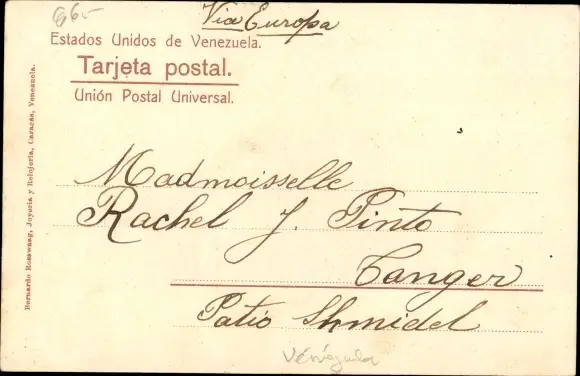 865-
Via Europa
Estados Unidos de Venezuela.
Tarjeta postal.
Unión Postal Universal.
Bernardo Rosswaag, Joyería y Relojería, Caracas, Venezuela.
Madmoisselle
Rachel J. Pinto
Tanger
Patio Shmidel
Vénézuela